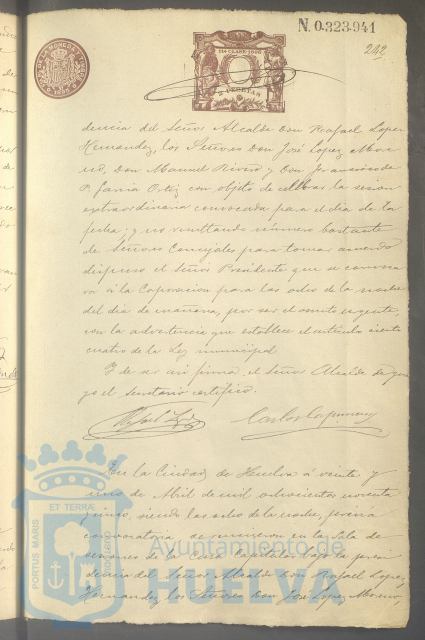 N. 0.323.941
242
11ª CLASE 1895
2 PESETAS
dencia del Señor Alcalde Don Rafael Lopez
Hernandez, los Señores Don José Lopez More-
no, Don Manuel Rivero y Don Francisco de
P. García Ortiz con objeto de celebrar la sesion
extraordinaria convocada para el dia de la
fecha; y no resultando número bastante
de Señores Concejales para tomar acuerdo
dispuso el Señor Presidente que se convoca-
ra á la Corporacion para las ocho de la noche
del dia de mañana, por ser el asunto urgente,
con la advertencia que establece el artículo ciento
cuatro de la Ley municipal
Y de ser asi firma el Señor Alcalde de que
yo el Secretario certifico.
Rafael Lopez
Carlos
En la Ciudad de Huelva á veinte y
uno de Abril de mil ochocientos noventa
y cinco, siendo las ocho de la noche, previa
convocatoria se reunieron en la Sala de
sesiones de la Casa Capitular bajo la presi-
dencia del Señor Alcalde Don Rafael Lopez
Hernandez, los Señores Don José Lopez Moreno,
PORTUS MARIS ET TERRÆ CUSTODIA
Ayuntamiento de
HUELVA